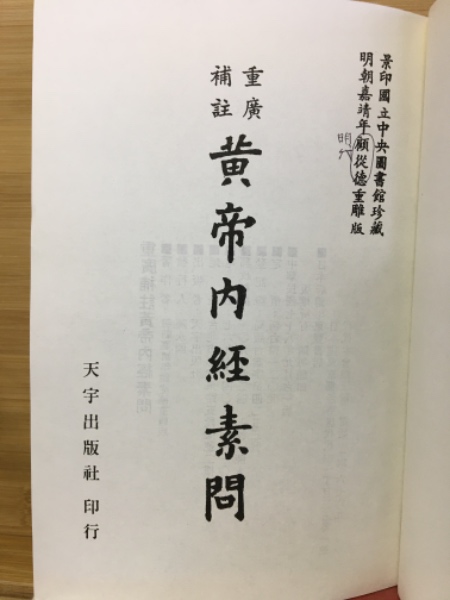 景印國立中央圖書館珍藏
明朝嘉靖年顧從德重雕版
明
重廣
補註
黄帝内經素問
天宇出版社 印行